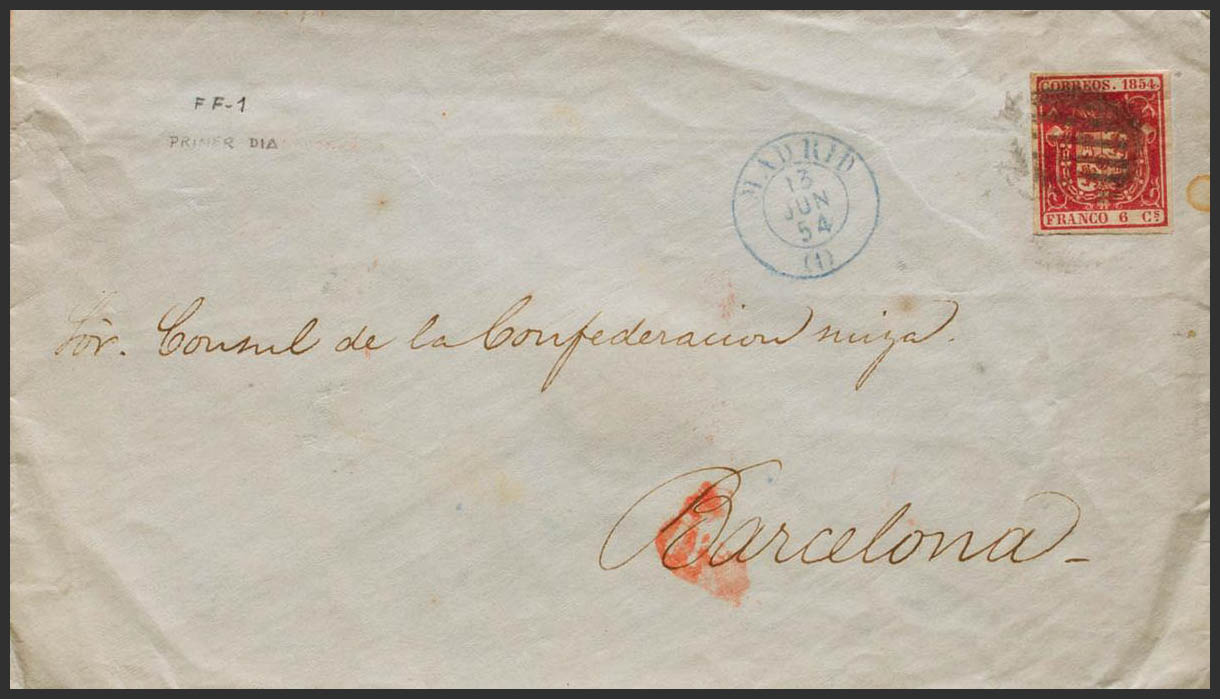 FF-1
PRIMER DIA
CORREOS. 1854.
FRANCO 6 Cs
MADRID
13
JUN
54
(1)
Sor. Consul de la Confederacion suiza.
Barcelona